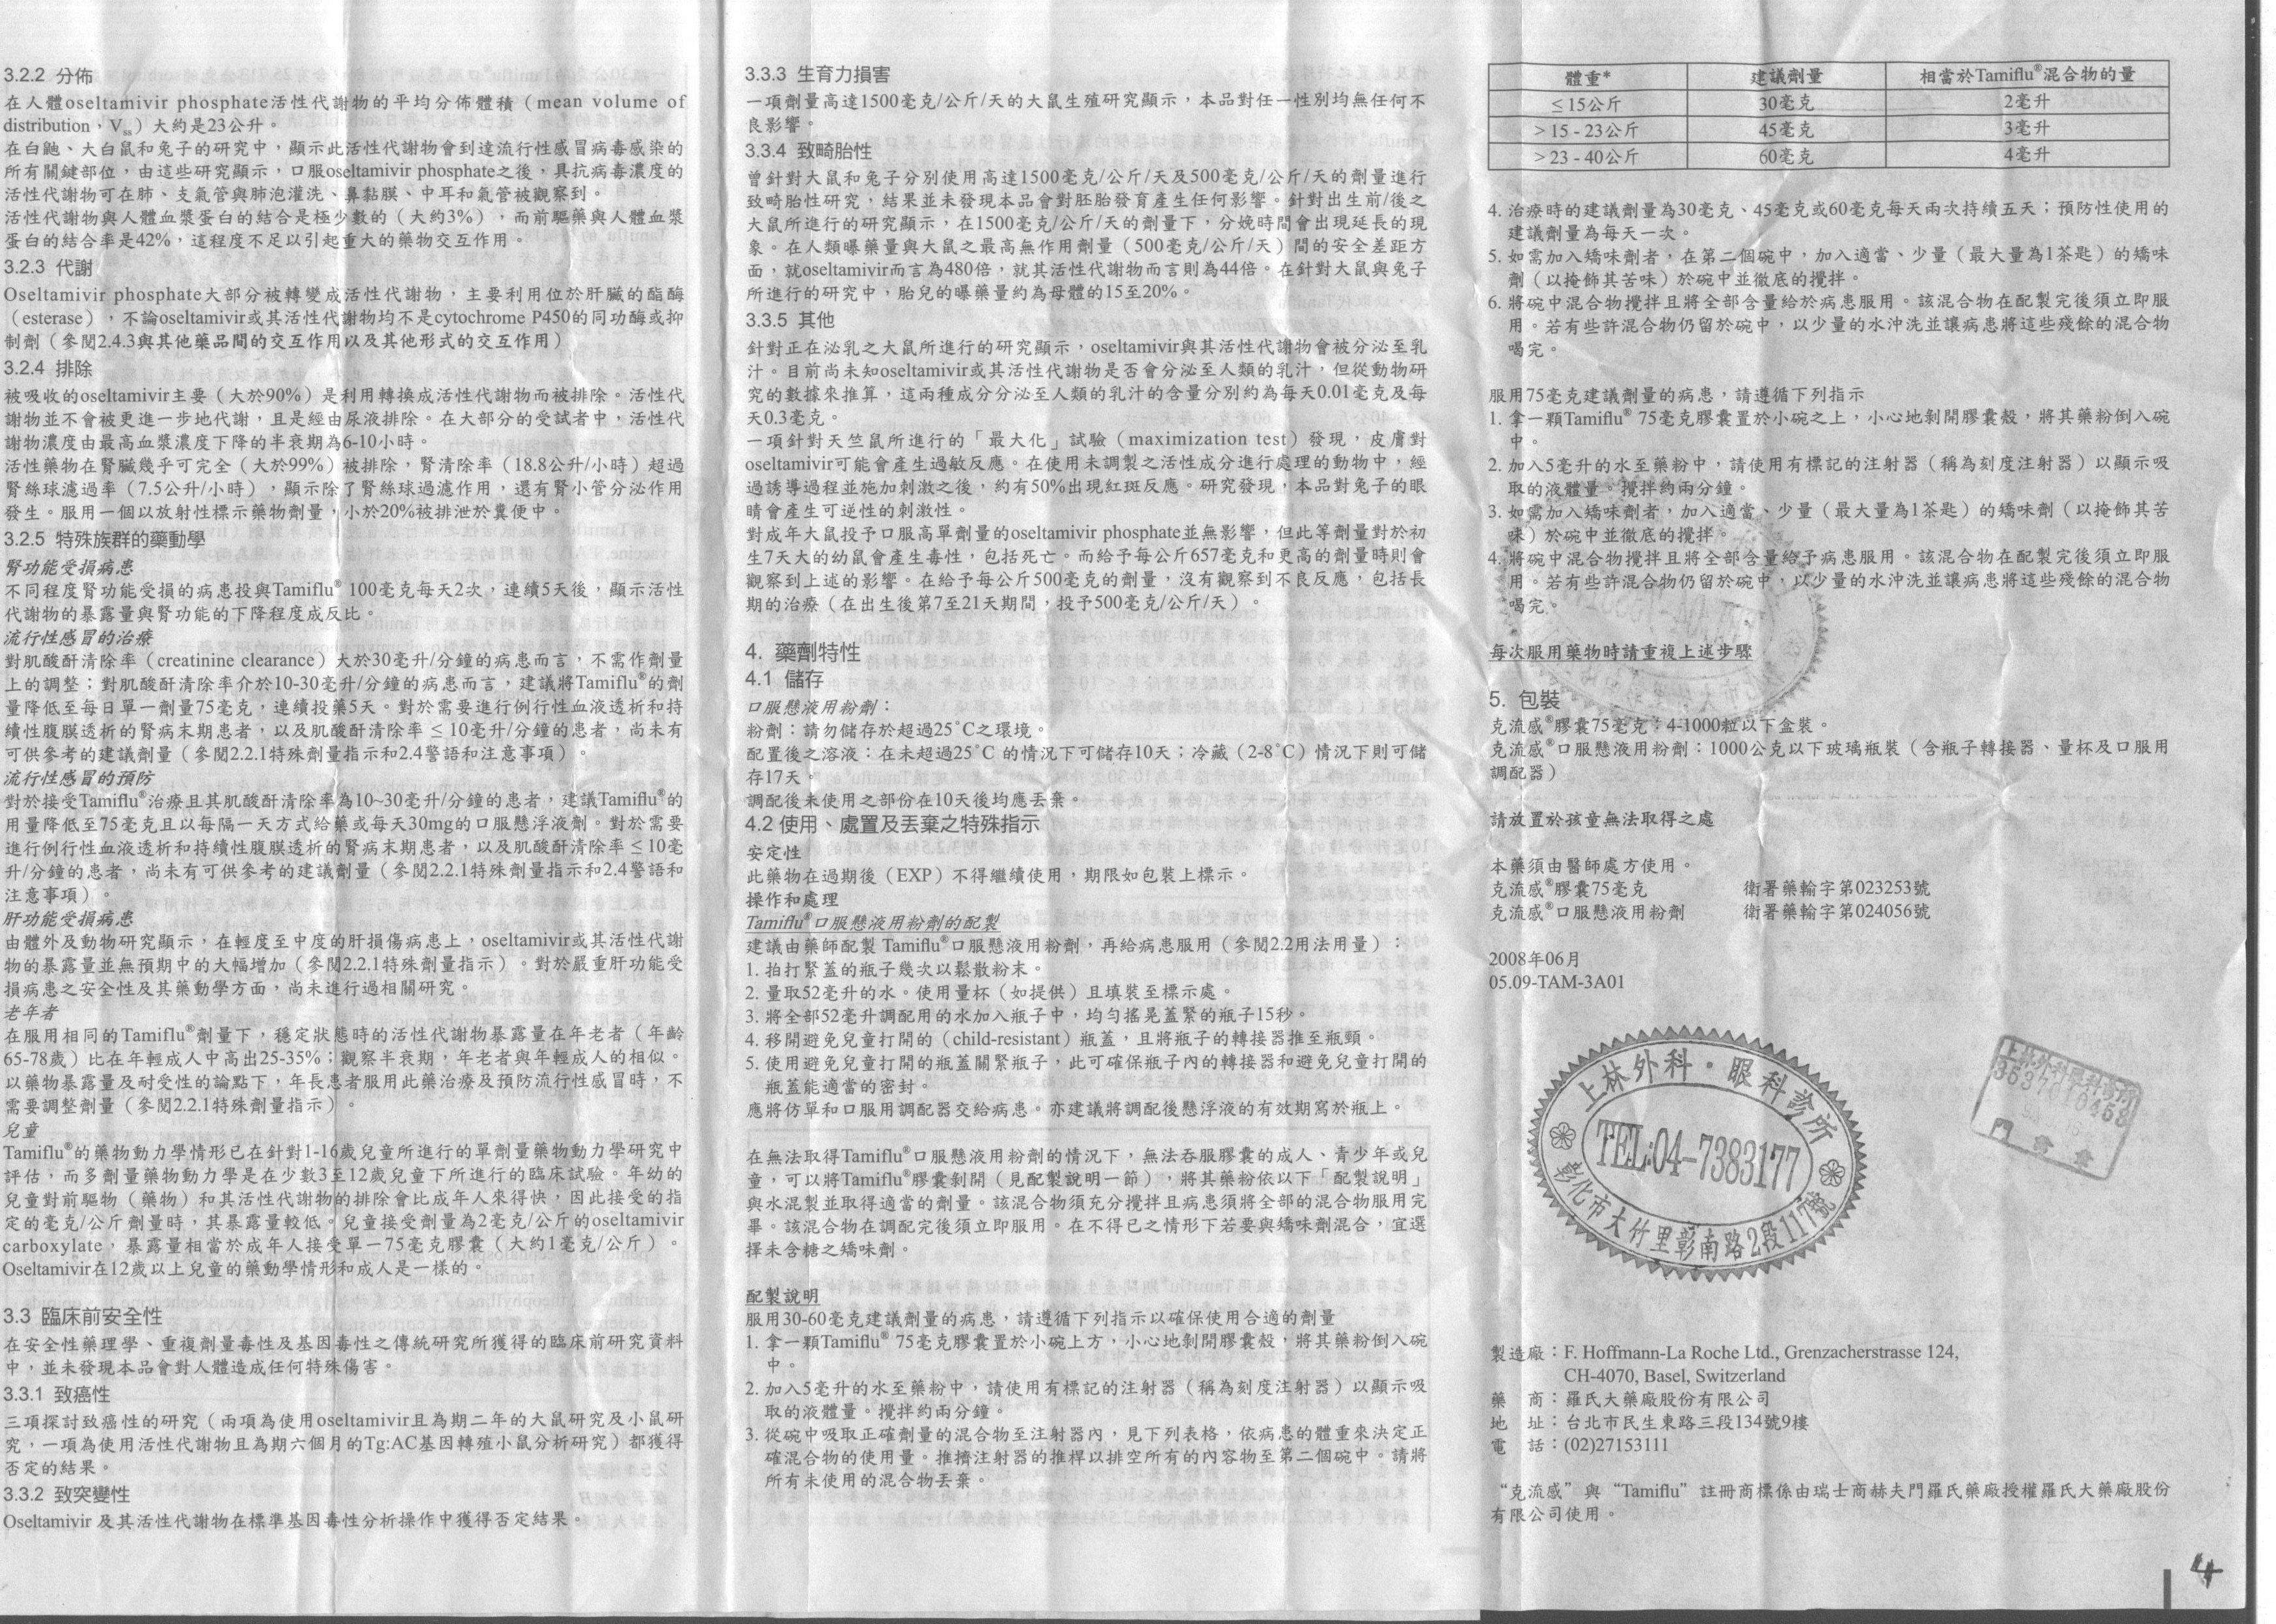 3.2.2 分佈
在人體oseltamivir phosphate活性代謝物的平均分佈體積（mean volume of
distribution，Vss）大約是23公升。
在白鼬、大白鼠和兔子的研究中，顯示此活性代謝物會到達流行性感冒病毒感染的
所有關鍵部位，由這些研究顯示，口服oseltamivir phosphate之後，具抗病毒濃度的
活性代謝物可在肺、支氣管與肺泡灌洗、鼻黏膜、中耳和氣管被觀察到。
活性代謝物與人體血漿蛋白的結合是極少數的（大約3%），而前驅藥與人體血漿
蛋白的結合率是42%，這程度不足以引起重大的藥物交互作用。
3.2.3 代謝
Oseltamivir phosphate大部分被轉變成活性代謝物，主要利用位於肝臟的酯酶
（esterase），不論oseltamivir或其活性代謝物均不是cytochrome P450的同功酶或抑
制劑（參閱2.4.3與其他藥品間的交互作用以及其他形式的交互作用）
3.2.4 排除
被吸收的oseltamivir主要（大於90%）是利用轉換成活性代謝物而被排除。活性代
謝物並不會被更進一步地代謝，且是經由尿液排除。在大部分的受試者中，活性代
謝物濃度由最高血漿濃度下降的半衰期為6-10小時。
活性藥物在腎臟幾乎可完全（大於99%）被排除，腎清除率（18.8公升/小時）超過
腎絲球濾過率（7.5公升/小時），顯示除了腎絲球過濾作用，還有腎小管分泌作用
發生。服用一個以放射性標示藥物劑量，小於20%被排泄於糞便中。
3.2.5 特殊族群的藥動學
腎功能受損病患
不同程度腎功能受損的病患投與Tamiflu® 100毫克每天2次，連續5天後，顯示活性
代謝物的暴露量與腎功能的下降程度成反比。
流行性感冒的治療
對肌酸酐清除率（creatinine clearance）大於30毫升/分鐘的病患而言，不需作劑量
上的調整；對肌酸酐清除率介於10-30毫升/分鐘的病患而言，建議將Tamiflu®的劑
量降低至每日單一劑量75毫克，連續投藥5天。對於需要進行例行性血液透析和持
續性腹膜透析的腎病末期患者，以及肌酸酐清除率 ≤ 10毫升/分鐘的患者，尚未有
可供參考的建議劑量（參閱2.2.1特殊劑量指示和2.4警語和注意事項）。
流行性感冒的預防
對於接受Tamiflu®治療且其肌酸酐清除率為10~30毫升/分鐘的患者，建議Tamiflu®的
用量降低至75毫克且以每隔一天方式給藥或每天30mg的口服懸浮液劑。對於需要
進行例行性血液透析和持續性腹膜透析的腎病末期患者，以及肌酸酐清除率 ≤ 10毫
升/分鐘的患者，尚未有可供參考的建議劑量（參閱2.2.1特殊劑量指示和2.4警語和
注意事項）。
肝功能受損病患
由體外及動物研究顯示，在輕度至中度的肝損傷病患上，oseltamivir或其活性代謝
物的暴露量並無預期中的大幅增加（參閱2.2.1特殊劑量指示）。對於嚴重肝功能受
損病患之安全性及其藥動學方面，尚未進行過相關研究。
老年者
在服用相同的Tamiflu®劑量下，穩定狀態時的活性代謝物暴露量在年老者（年齡
65-78歲）比在年輕成人中高出25-35%；觀察半衰期，年老者與年輕成人的相似。
以藥物暴露量及耐受性的論點下，年長患者服用此藥治療及預防流行性感冒時，不
需要調整劑量（參閱2.2.1特殊劑量指示）。
兒童
Tamiflu®的藥物動力學情形已在針對1-16歲兒童所進行的單劑量藥物動力學研究中
評估，而多劑量藥物動力學是在少數3至12歲兒童下所進行的臨床試驗。年幼的
兒童對前驅物（藥物）和其活性代謝物的排除會比成年人來得快，因此接受的指
定的毫克/公斤劑量時，其暴露量較低。兒童接受劑量為2毫克/公斤的oseltamivir
carboxylate，暴露量相當於成年人接受單一75毫克膠囊（大約1毫克/公斤）。
Oseltamivir在12歲以上兒童的藥動學情形和成人是一樣的。
3.3 臨床前安全性
在安全性藥理學、重複劑量毒性及基因毒性之傳統研究所獲得的臨床前研究資料
中，並未發現本品會對人體造成任何特殊傷害。
3.3.1 致癌性
三項探討致癌性的研究（兩項為使用oseltamivir且為期二年的大鼠研究及小鼠研
究，一項為使用活性代謝物且為期六個月的Tg:AC基因轉殖小鼠分析研究）都獲得
否定的結果。
3.3.2 致突變性
Oseltamivir 及其活性代謝物在標準基因毒性分析操作中獲得否定結果。
3.3.3 生育力損害
一項劑量高達1500毫克/公斤/天的大鼠生殖研究顯示，本品對任一性別均無任何不
良影響。
3.3.4 致畸胎性
曾針對大鼠和兔子分別使用高達1500毫克/公斤/天及500毫克/公斤/天的劑量進行
致畸胎性研究，結果並未發現本品會對胚胎發育產生任何影響。針對出生前/後之
大鼠所進行的研究顯示，在1500毫克/公斤/天的劑量下，分娩時間會出現延長的現
象。在人類曝藥量與大鼠之最高無作用劑量（500毫克/公斤/天）間的安全差距方
面，就oseltamivir而言為480倍，就其活性代謝物而言則為44倍。在針對大鼠與兔子
所進行的研究中，胎兒的曝藥量約為母體的15至20%。
3.3.5 其他
針對正在泌乳之大鼠所進行的研究顯示，oseltamivir與其活性代謝物會被分泌至乳
汁。目前尚未知oseltamivir或其活性代謝物是否會分泌至人類的乳汁，但從動物研
究的數據來推算，這兩種成分分泌至人類的乳汁的含量分別約為每天0.01毫克及每
天0.3毫克。
一項針對天竺鼠所進行的「最大化」試驗（maximization test）發現，皮膚對
oseltamivir可能會產生過敏反應。在使用未調製之活性成分進行處理的動物中，經
過誘導過程並施加刺激之後，約有50%出現紅斑反應。研究發現，本品對兔子的眼
睛會產生可逆性的刺激性。
對成年大鼠投予口服高單劑量的oseltamivir phosphate並無影響，但此等劑量對於初
生7天大的幼鼠會產生毒性，包括死亡。而給予每公斤657毫克和更高的劑量時則會
觀察到上述的影響。在給予每公斤500毫克的劑量，沒有觀察到不良反應，包括長
期的治療（在出生後第7至21天期間，投予500毫克/公斤/天）。
4. 藥劑特性
4.1 儲存
口服懸液用粉劑：
粉劑：請勿儲存於超過25˚C之環境。
配置後之溶液：在未超過25˚C 的情況下可儲存10天；冷藏（2-8˚C）情況下則可儲
存17天。
調配後未使用之部份在10天後均應丟棄。
4.2 使用、處置及丟棄之特殊指示
安定性
此藥物在過期後（EXP）不得繼續使用，期限如包裝上標示。
操作和處理
Tamiflu®口服懸液用粉劑的配製
建議由藥師配製 Tamiflu®口服懸液用粉劑，再給病患服用（參閱2.2用法用量）：
1. 拍打緊蓋的瓶子幾次以鬆散粉末。
2. 量取52毫升的水。使用量杯（如提供）且填裝至標示處。
3. 將全部52毫升調配用的水加入瓶子中，均勻搖晃蓋緊的瓶子15秒。
4. 移開避免兒童打開的（child-resistant）瓶蓋，且將瓶子的轉接器推至瓶頸。
5. 使用避免兒童打開的瓶蓋關緊瓶子，此可確保瓶子內的轉接器和避免兒童打開的
瓶蓋能適當的密封。
應將仿單和口服用調配器交給病患。亦建議將調配後懸浮液的有效期寫於瓶上。
在無法取得Tamiflu®口服懸液用粉劑的情況下，無法吞服膠囊的成人、青少年或兒
童，可以將Tamiflu®膠囊剝開（見配製說明一節），將其藥粉依以下「配製說明」
與水混製並取得適當的劑量。該混合物須充分攪拌且病患須將全部的混合物服用完
畢。該混合物在調配完後須立即服用。在不得已之情形下若要與矯味劑混合，宜選
擇未含糖之矯味劑。
配製說明
服用30-60毫克建議劑量的病患，請遵循下列指示以確保使用合適的劑量
1. 拿一顆Tamiflu® 75毫克膠囊置於小碗上方，小心地剝開膠囊殼，將其藥粉倒入碗
中。
2. 加入5毫升的水至藥粉中，請使用有標記的注射器（稱為刻度注射器）以顯示吸
取的液體量。攪拌約兩分鐘。
3. 從碗中吸取正確劑量的混合物至注射器內，見下列表格，依病患的體重來決定正
確混合物的使用量。推擠注射器的推桿以排空所有的內容物至第二個碗中。請將
所有未使用的混合物丟棄。
體重* 建議劑量 相當於Tamiflu®混合物的量
≤ 15公斤 30毫克 2毫升
> 15 - 23公斤 45毫克 3毫升
> 23 - 40公斤 60毫克 4毫升
4. 治療時的建議劑量為30毫克、45毫克或60毫克每天兩次持續五天；預防性使用的
建議劑量為每天一次。
5. 如需加入矯味劑者，在第二個碗中，加入適當、少量（最大量為1茶匙）的矯味
劑（以掩飾其苦味）於碗中並徹底的攪拌。
6. 將碗中混合物攪拌且將全部含量給於病患服用。該混合物在配製完後須立即服
用。若有些許混合物仍留於碗中，以少量的水沖洗並讓病患將這些殘餘的混合物
喝完。
服用75毫克建議劑量的病患，請遵循下列指示
1. 拿一顆Tamiflu® 75毫克膠囊置於小碗之上，小心地剝開膠囊殼，將其藥粉倒入碗
中。
2. 加入5毫升的水至藥粉中，請使用有標記的注射器（稱為刻度注射器）以顯示吸
取的液體量。攪拌約兩分鐘。
3. 如需加入矯味劑者，加入適當、少量（最大量為1茶匙）的矯味劑（以掩飾其苦
味）於碗中並徹底的攪拌。
4. 將碗中混合物攪拌且將全部含量給予病患服用。該混合物在配製完後須立即服
用。若有些許混合物仍留於碗中，以少量的水沖洗並讓病患將這些殘餘的混合物
喝完。
每次服用藥物時請重複上述步驟
5. 包裝
克流感®膠囊75毫克：4-1000粒以下盒裝。
克流感®口服懸液用粉劑：1000公克以下玻璃瓶裝（含瓶子轉接器、量杯及口服用
調配器）
請放置於孩童無法取得之處
本藥須由醫師處方使用。
克流感®膠囊75毫克 衛署藥輸字第023253號
克流感®口服懸液用粉劑 衛署藥輸字第024056號
2008年06月
05.09-TAM-3A01
上林外科・眼科診所
TEL:04-7383177
彰化市大竹里彰南路2段117號
上林外科眼科診所
3637010458
製造廠：F. Hoffmann-La Roche Ltd., Grenzacherstrasse 124,
CH-4070, Basel, Switzerland
藥 商：羅氏大藥廠股份有限公司
地 址：台北市民生東路三段134號9樓
電 話：(02)27153111
“克流感”與“Tamiflu”註冊商標係由瑞士商赫夫門羅氏藥廠授權羅氏大藥廠股份
有限公司使用。
4